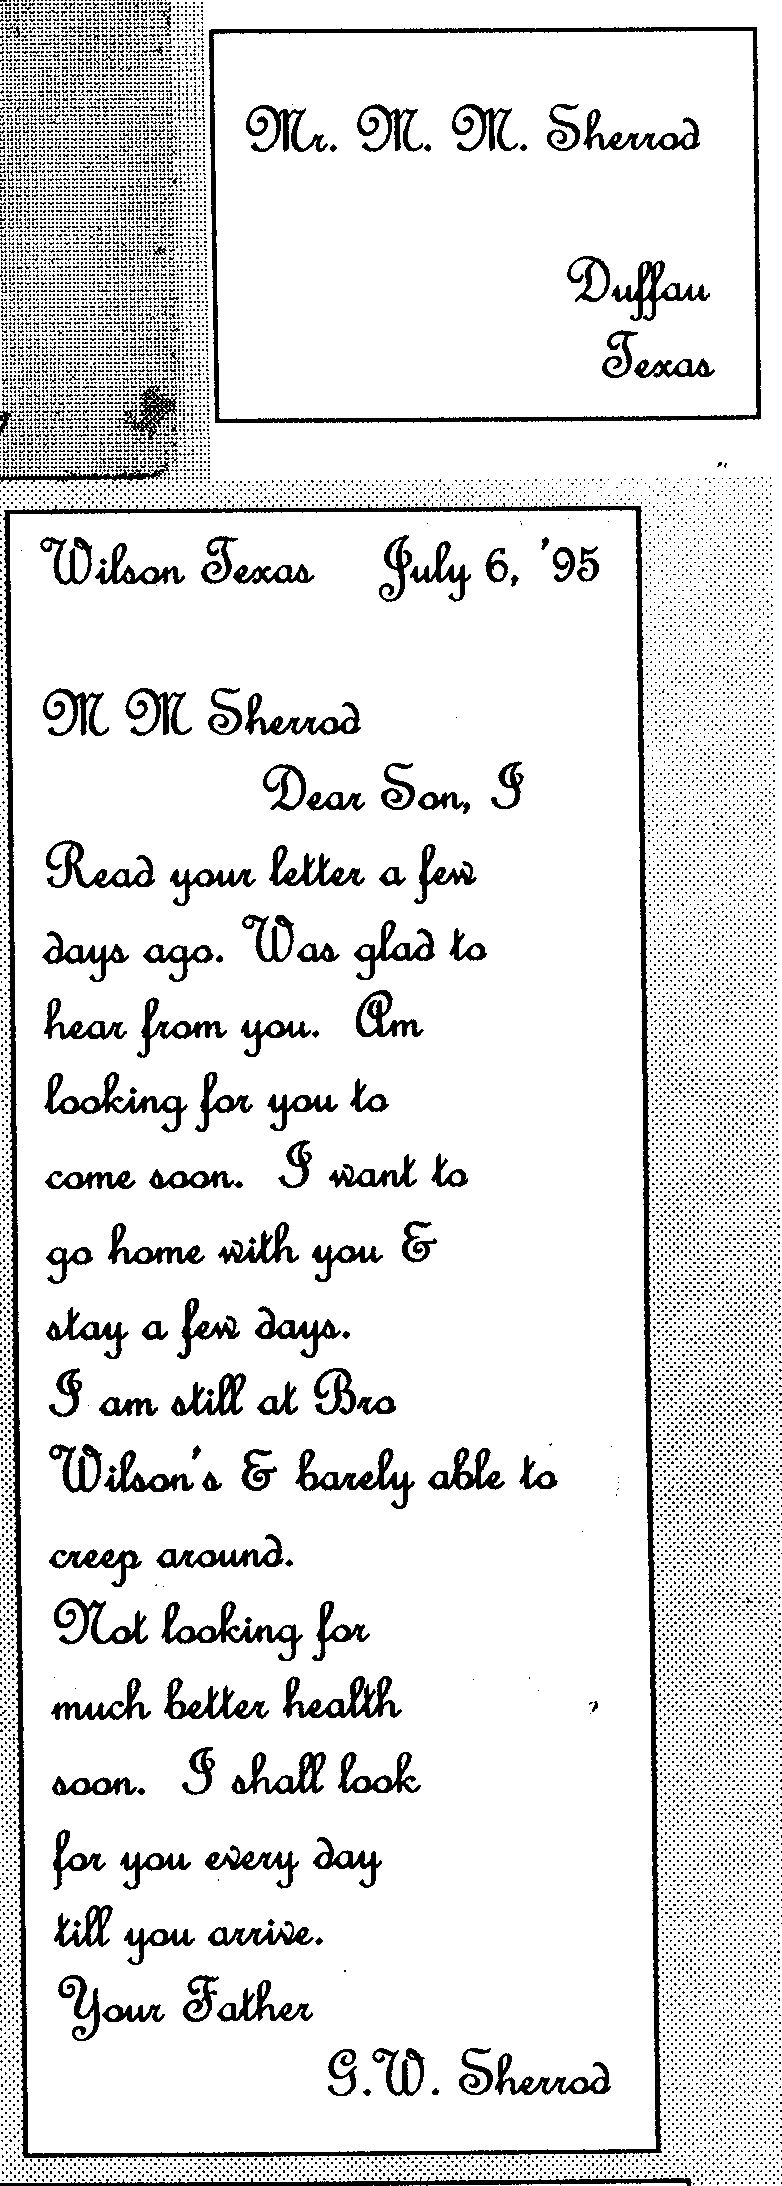 Mr. M. M. Sherrod
Duffau
Texas
Wilson Texas July 6, '95
M M Sherrod
Dear Son, I
Read your letter a few
days ago. Was glad to
hear from you. Am
looking for you to
come soon. I want to
go home with you &
stay a few days.
I am still at Bro
Wilson's & barely able to
creep around.
Not looking for
much better health
soon. I shall look
for you every day
till you arrive.
Your Father
G.W. Sherrod